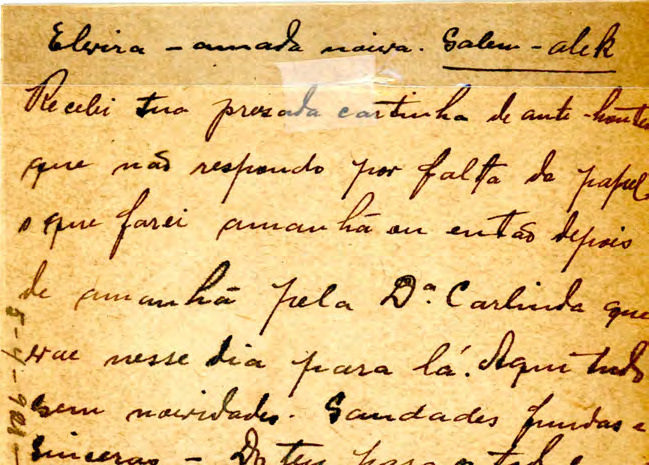 Elvira - amada noiva. Salem-alek
Recebi tua presada cartinha de ante-hontem
que não respondo por falta de papel
o que farei amanhã ou então depois
de amanhã pela Dª Carlinda que
vae nesse dia para lá. Aqui tudo
sem novidades. Saudades fundas e
sinceras - Do teu para
5-4-908-